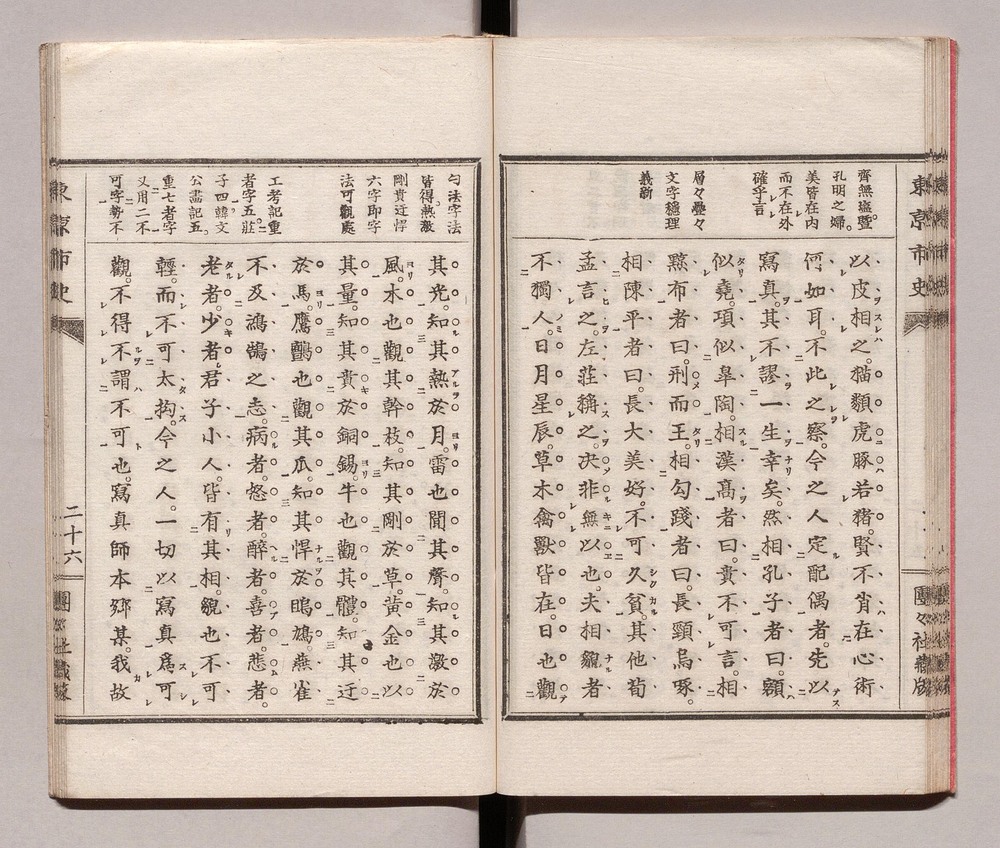 東京市史
團々社藏版
齊無塩曁
孔明之婦。
美皆在内
而不在外
確乎言
層々疊々
文字穩理
義新
以皮相之。猫類虎豚若猪。賢不肖在心術
何如耳。不此之察。今之人定配偶者。先以
寫真。其不謬一生幸矣。然相孔子者曰。額
似堯。項似皋陶。相漢高者曰。貴不可言。相
黥布者曰。刑而王。相勾踐者曰。長頸烏喙。
相陳平者曰。長大美好。不可久貧。其他荀
孟言之。左莊稱之。決非無以也。夫相貌者
不獨人。日月星辰。草木禽獸皆在。日也觀
勻法字法
皆得熱激
剛貴迂悍
六字即字
法可觀處
工考記重
者字五。莊
子四韓文
公畫記五。
重七者字
又用二不
可字勢不
其光。知其熱於月。雷也聞其聲。知其激於
風。木也觀其幹枝。知其剛於草。黄金也以
其量。知其貴於銅錫。牛也觀其體。知其迂
於馬。鷹鸇也觀其爪。知其悍於鴟鳩。燕雀
不及鴻鵠之志。病者。怒者。醉者。喜者。悲者。
老者。少者。君子小人。皆有其相貌也。不可
輕。而不可太拘。今之人。一切以寫真爲可
觀。不得不謂不可也。寫真師本鄉某。我故
二十六